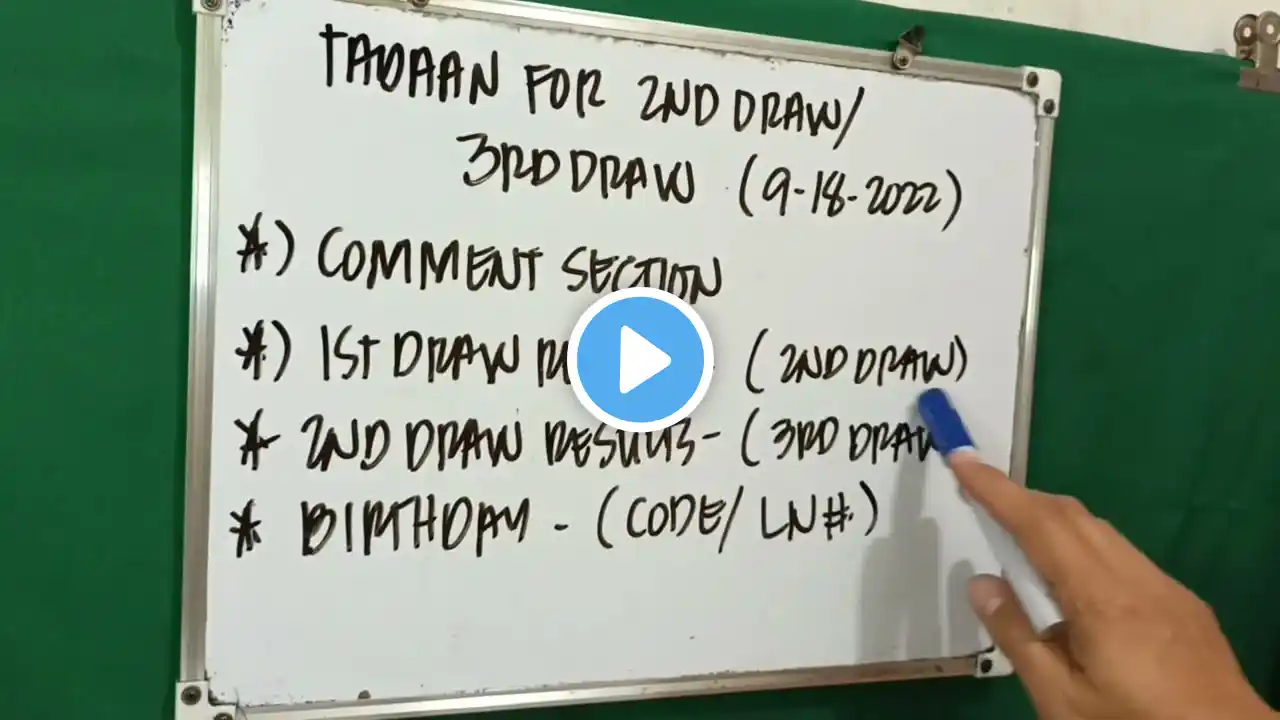 TADAAN FOR 2ND DRAW/
3RD DRAW (9-18-2022)
*) COMMENT SECTION
*) 1ST DRAW (2ND DRAW)
* 2ND DRAW RESULTS - (3RD DRAW
* BIRTHDAY - (CODE/ LN#)